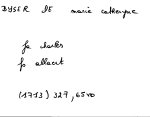 DYSER DE marie catherine
fa charles
fs albert
(1713) 327, 65vo